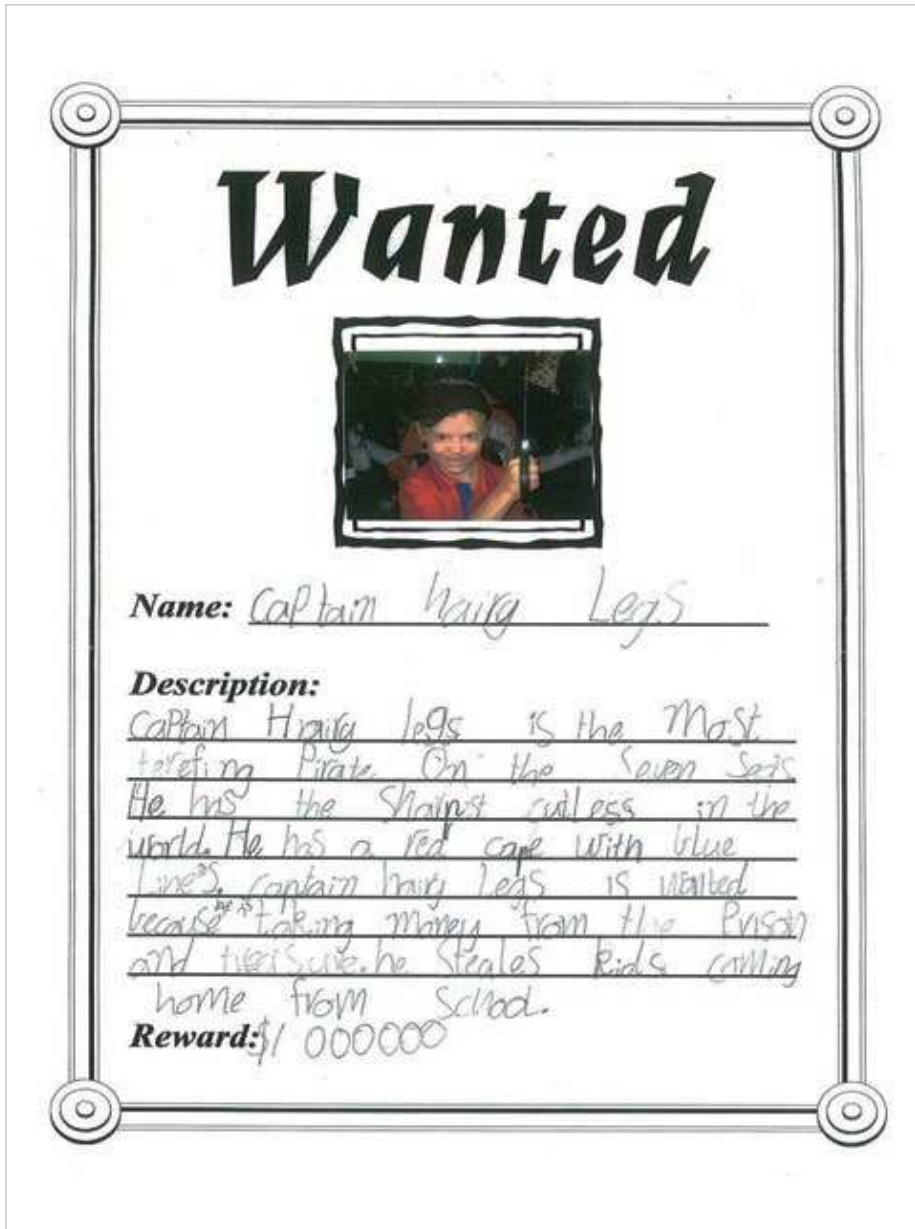 Wanted
Name: Captain hairy Legs
Description:
Captain Hairy legs is the Most
terefing Pirate On the Seven Seas
He has the Sharpst cutless in the
world. He has a red cape with blue
Lines. captain hairy Legs is wanted
because he is taking money from the Prison
and he steales kids coming
home from School.
Reward: $1 000000